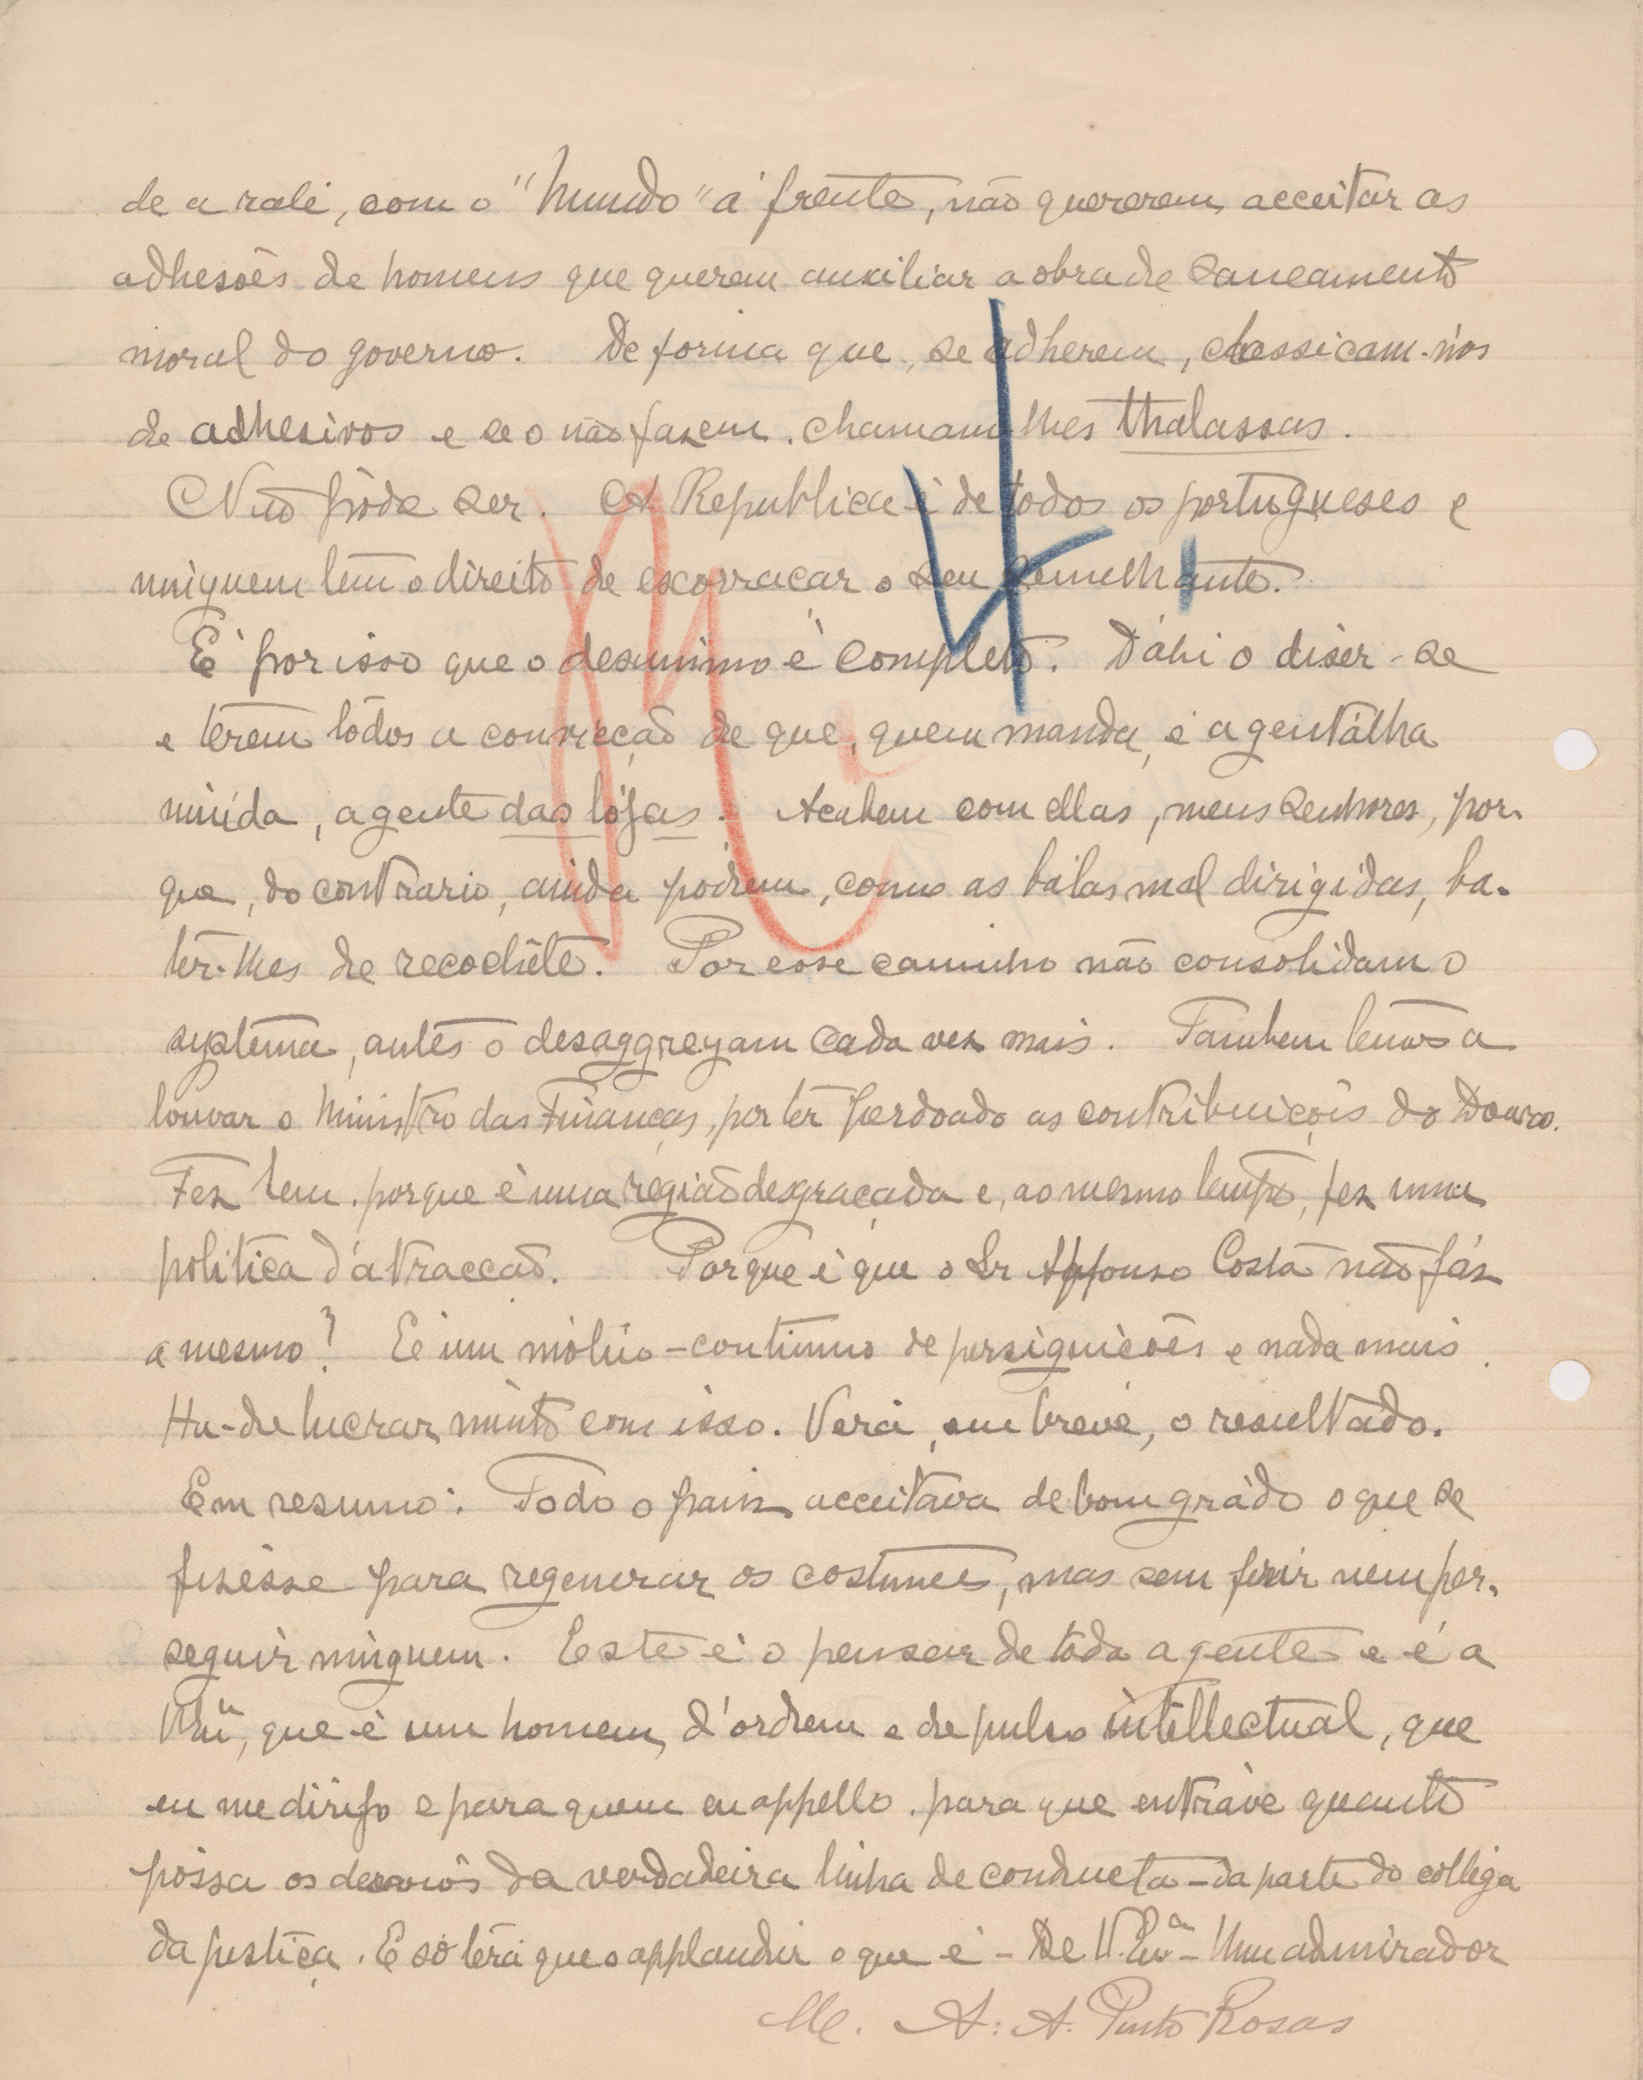 de a ralé, com o "Mundo" á frente, não quererem acceitar as
adhesões de homens que querem auxiliar a obra de saneamento
moral do governo. De forma que, se adherem, classicam-nos
de adhesivos e se o não fazem, chamam lhes thalassas.
Não póde ser. A Republica é de todos os portugueses e
ninguem tem o direito de escorraçar o seu semelhante.
É por isso que o desanimo é completo. Dáhi o disér-se
e terem tôdos a convicção de que, quem manda, é a gentálha
miúda, a gente das lójas. Acabem com ellas, meus senhores, por-
que, do contrario, ainda pódem, como as balas mal dirigidas, ba-
ter-lhes de recochête. Por esse caminho não consolidam o
systema, antes o desaggregam cada vez mais. Tambem temos a
louvar o Ministro das Finanças, por ter perdoado as contribuições do Douro.
Fez bem, porque é uma região desgraçada e, ao mesmo tempo, fez uma
politica d'atracção. Porque é que o Sr Affonso Costa não fáz
o mesmo? É um mótúo-continuo de persiguições e nada mais.
Ha-de lucrar muito com isso. Verá, em breve, o resultado.
Em resumo: Todo o paiz acceitava de bom grádo o que se
fizésse para regenerar os costumes, mas sem ferir nem per-
seguir ninguem. Este é o pensar de tôda a gente e é a
que é um homem d'ordem e de pulso intellectual, que
eu me dirijo e para quem eu appello, para que entráve quanto
póssa os desvios da verdadeira linha de conducta - da parte do collega
da justiça. E só terá que o applaudir o que é - De V. Exª - Um admirador
M. A. A. Pinto Rosas